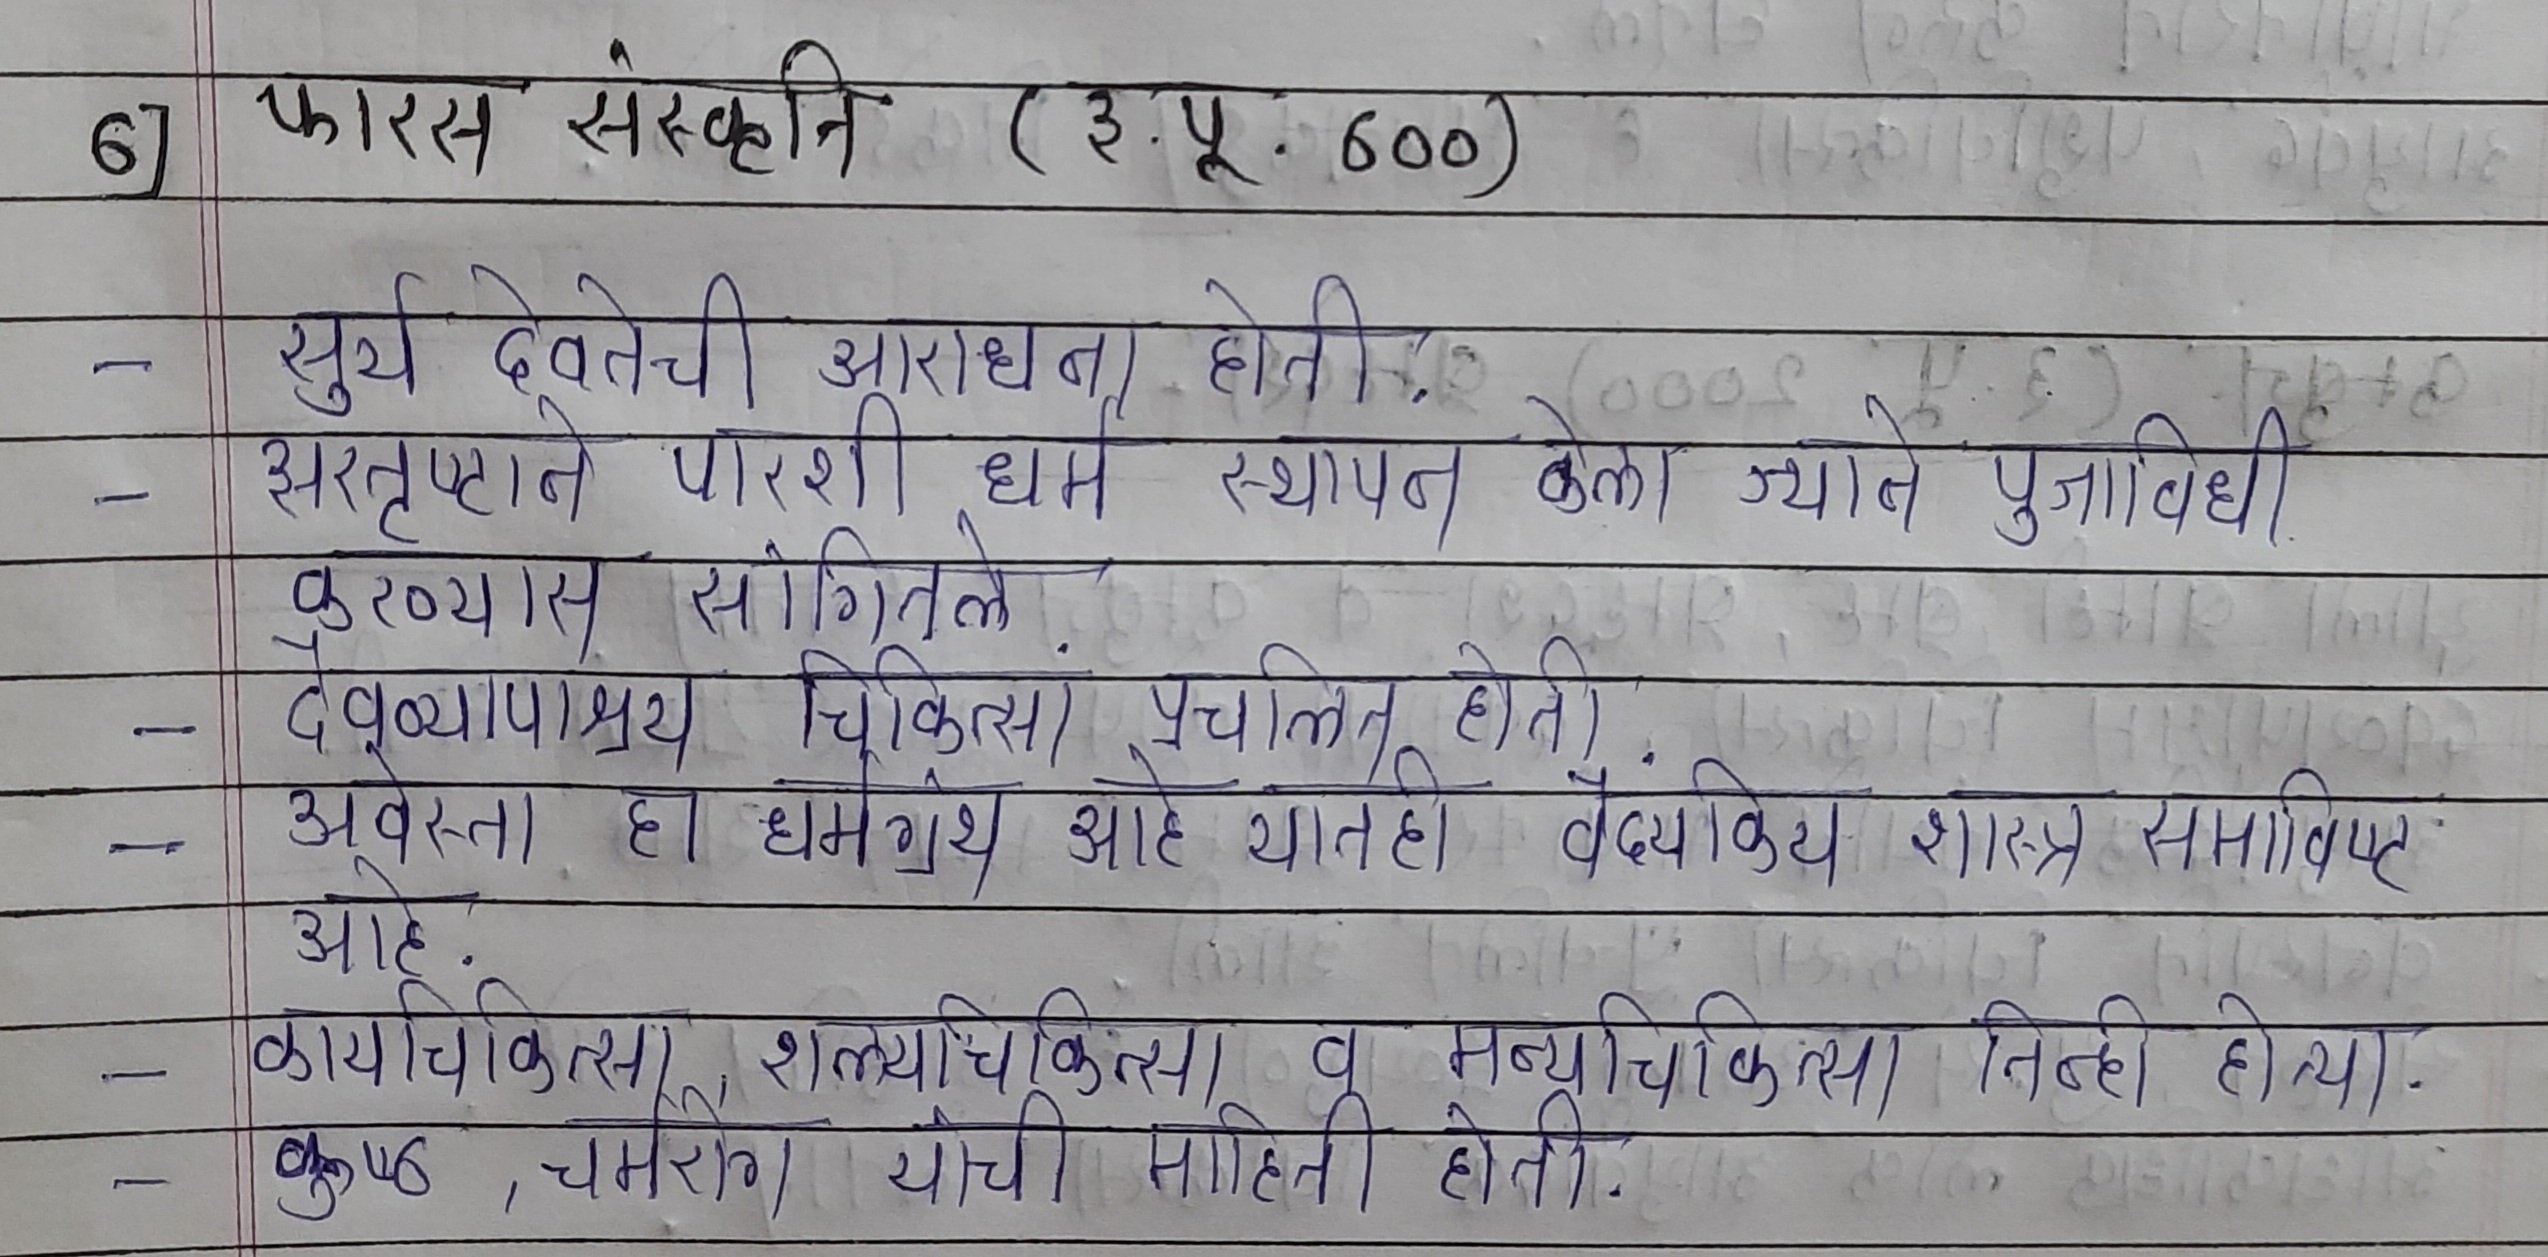 6] फारस संस्कृति (इ.पू. 600)
- सुर्य देवतेची आराधना होती.
- झरतृष्टाने पारशी धर्म स्थापन केला ज्याने पुजाविधी
करण्यास सांगितले.
- दैवव्यापाश्रय चिकित्सा प्रचलित होती.
- अवेस्ता हा धर्मग्रंथ आहे यातही वैद्यकिय शास्त्र समाविष्ट
आहे.
- कायचिकित्सा, शल्यचिकित्सा व मन्यचिकित्सा तिन्ही होत्या.
- कुष्ठ, चर्मरोग यांची माहिती होती.